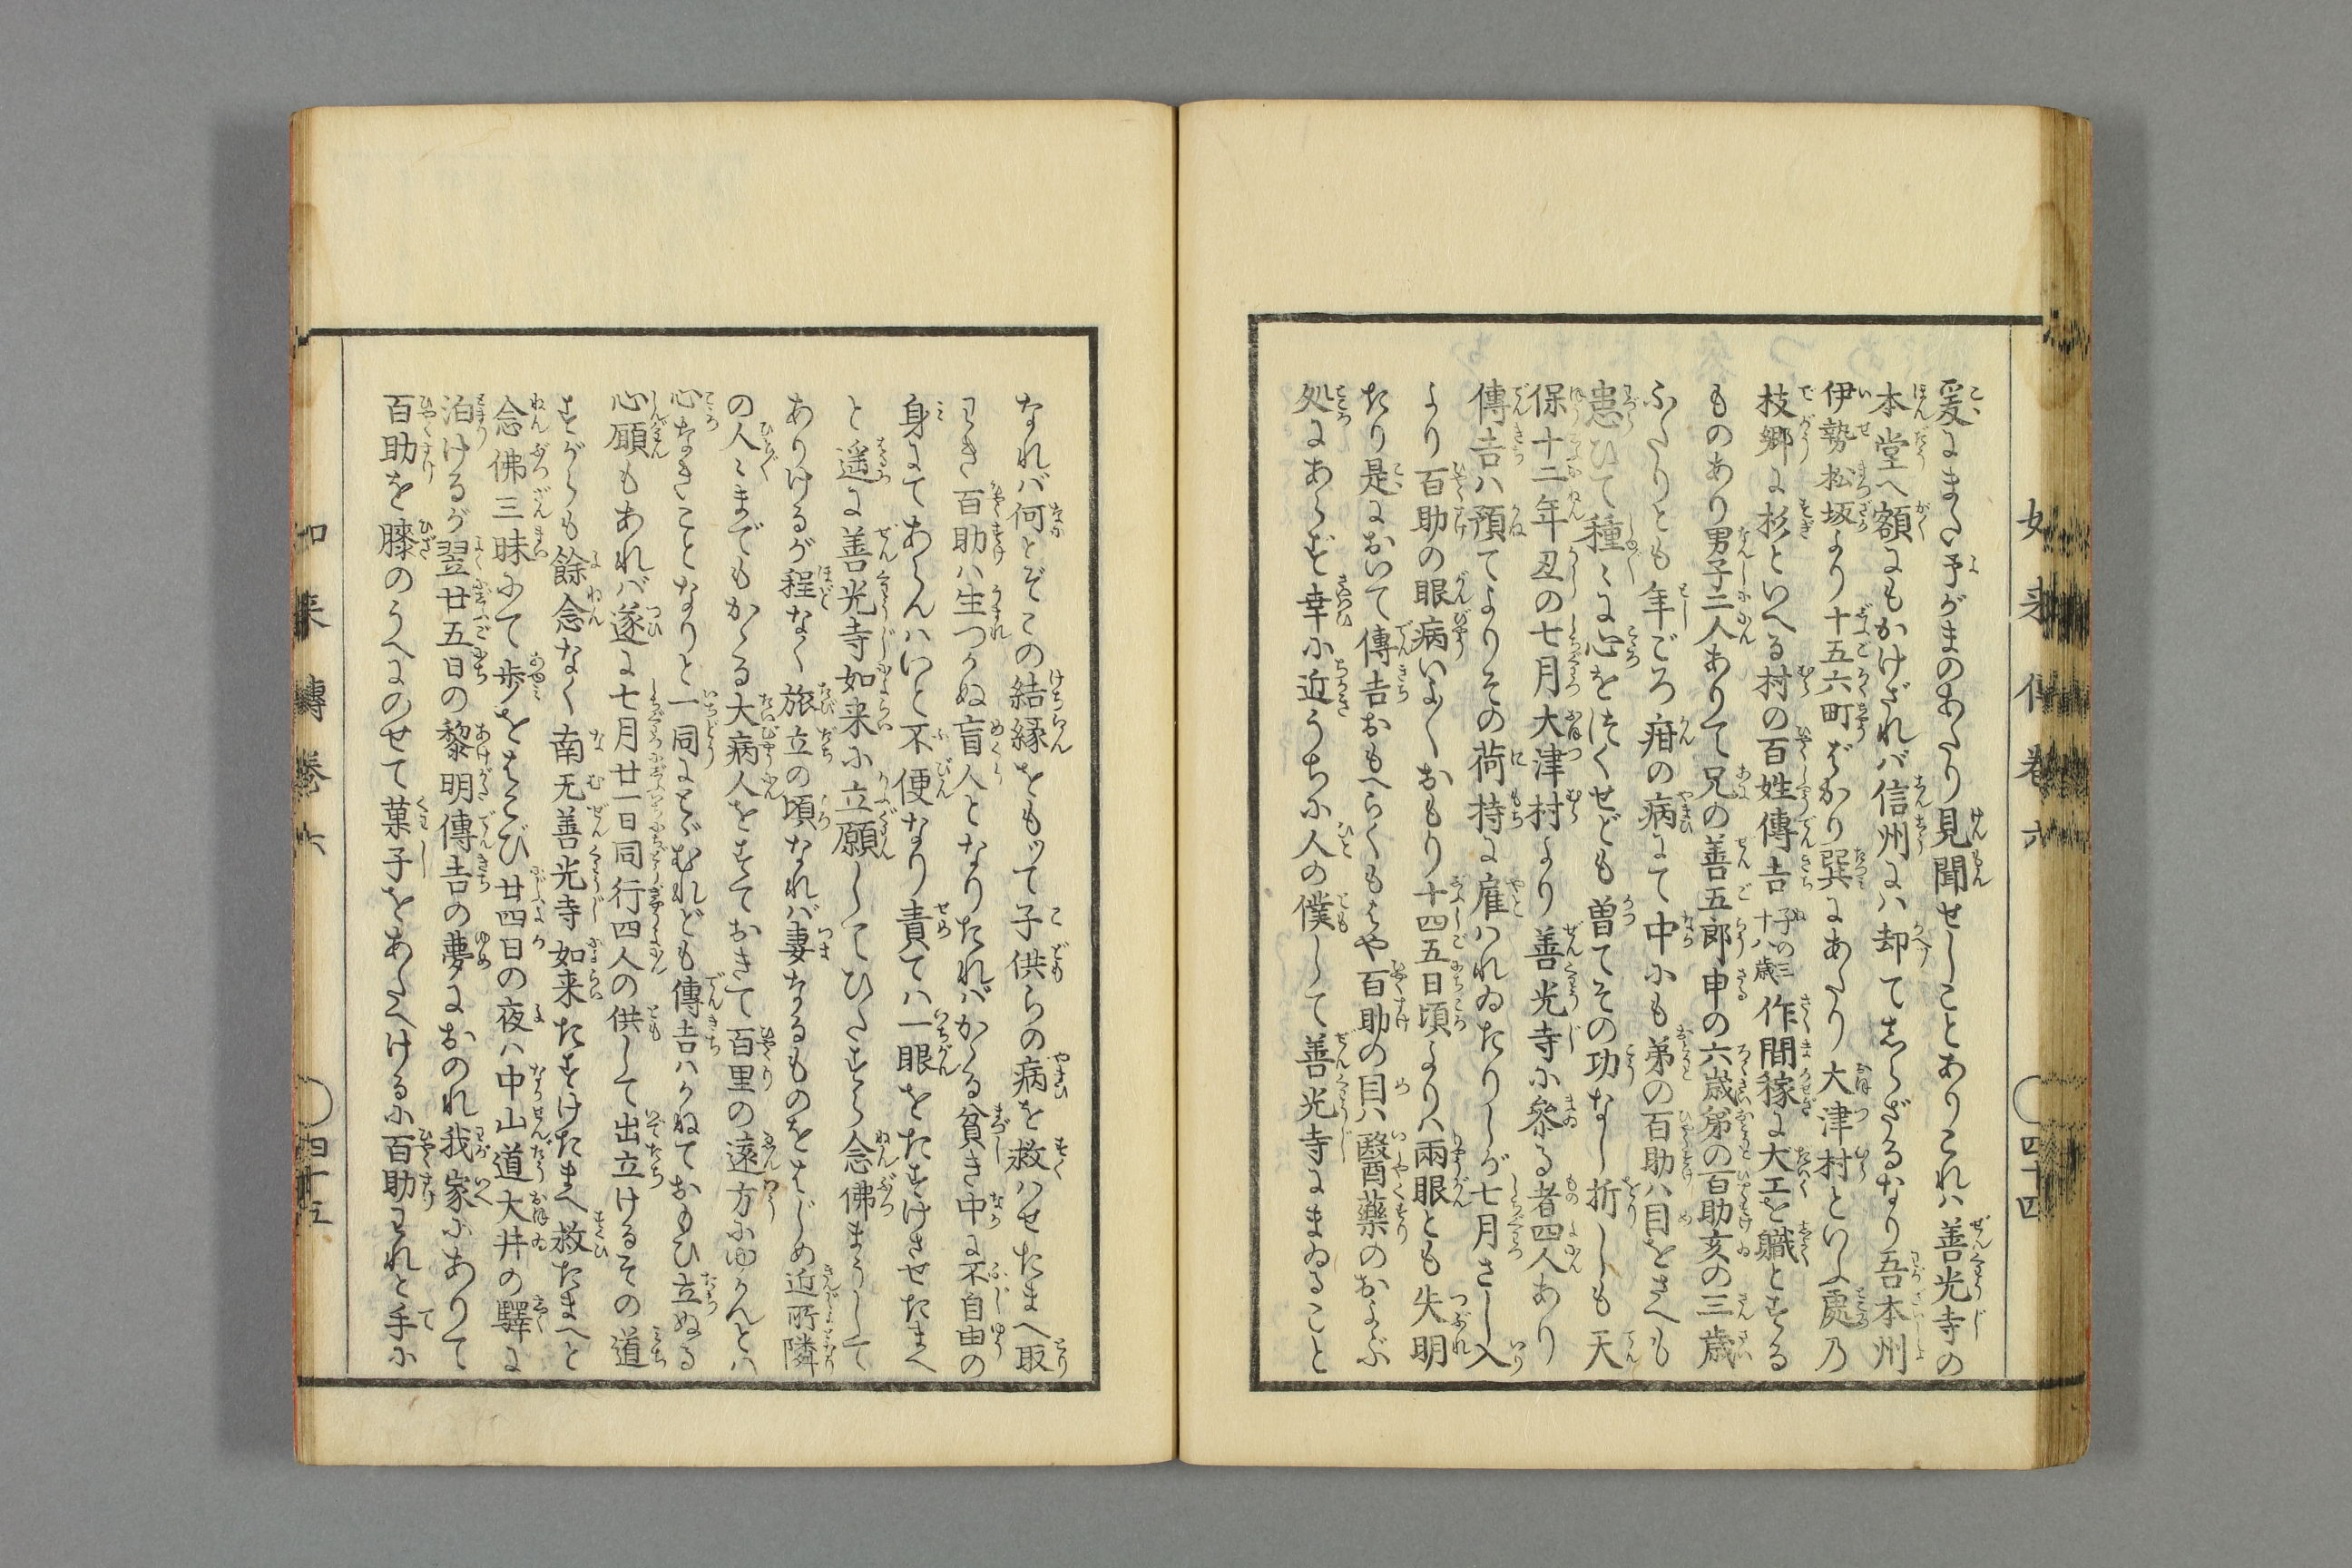 爰にまた予がまのあたり見聞せしことありこれハ善光寺の
本堂へ額にもかけざれバ信州にハ却て志らざるなり吾本州
伊勢松坂より十五六町ばかり巽にあたり大津村といふ處乃
枝郷に杉といへる村の百姓傳吉子の三十八歳作間稼に大工を職とする
ものあり男子二人ありて兄の善五郎申の六歳弟の百助亥の三歳
ふたりとも年ごろ疳の病にて中にも弟の百助ハ目をさへも
患ひて種〻に心をつくせども曽てその功なし折しも天
保十二年丑の七月大津村より善光寺に參る者四人あり
傳吉ハ預てよりその荷持に雇ハれゐたりしが七月さし入
より百助の眼病いよ〱おもり十四五日頃よりハ兩眼とも失明
たり是において傳吉おもへらくもはや百助の目ハ醫藥のおよぶ
処にあらず幸に近うちに人の僕して善光寺にまゐること
如来傳巻六
四十四
なれバ何とぞこの結縁をもッて子供らの病を救ハせたまへ取
わき百助ハ生つかぬ盲人となりたれバかゝる貧き中に不自由の
身にてあらんハいと不便なり責てハ一眼をたすけさせたまへ
と遥に善光寺如来に立願してひたすら念佛まうして
ありけるが程なく旅立の頃なれバ妻なるものをはじめ近所隣
の人〻までもかゝる大病人をすておきて百里の遠方にゆかんとハ
心なきことなりと一同にとゞむれども傳吉ハかねておもひ立ぬる
心願もあれバ遂に七月廿一日同行四人の供して出立けるその道
すがらも餘念なく南无善光寺如来たすけたまへ救たまへと
念佛三昧にて歩をはこび廿四日の夜ハ中山道大井の驛に
泊けるが翌廿五日の黎明傳吉の夢におのれ我家にありて
百助を膝のうへにのせて菓子をあたへけるに百助われと手に
如来傳巻六
四十五